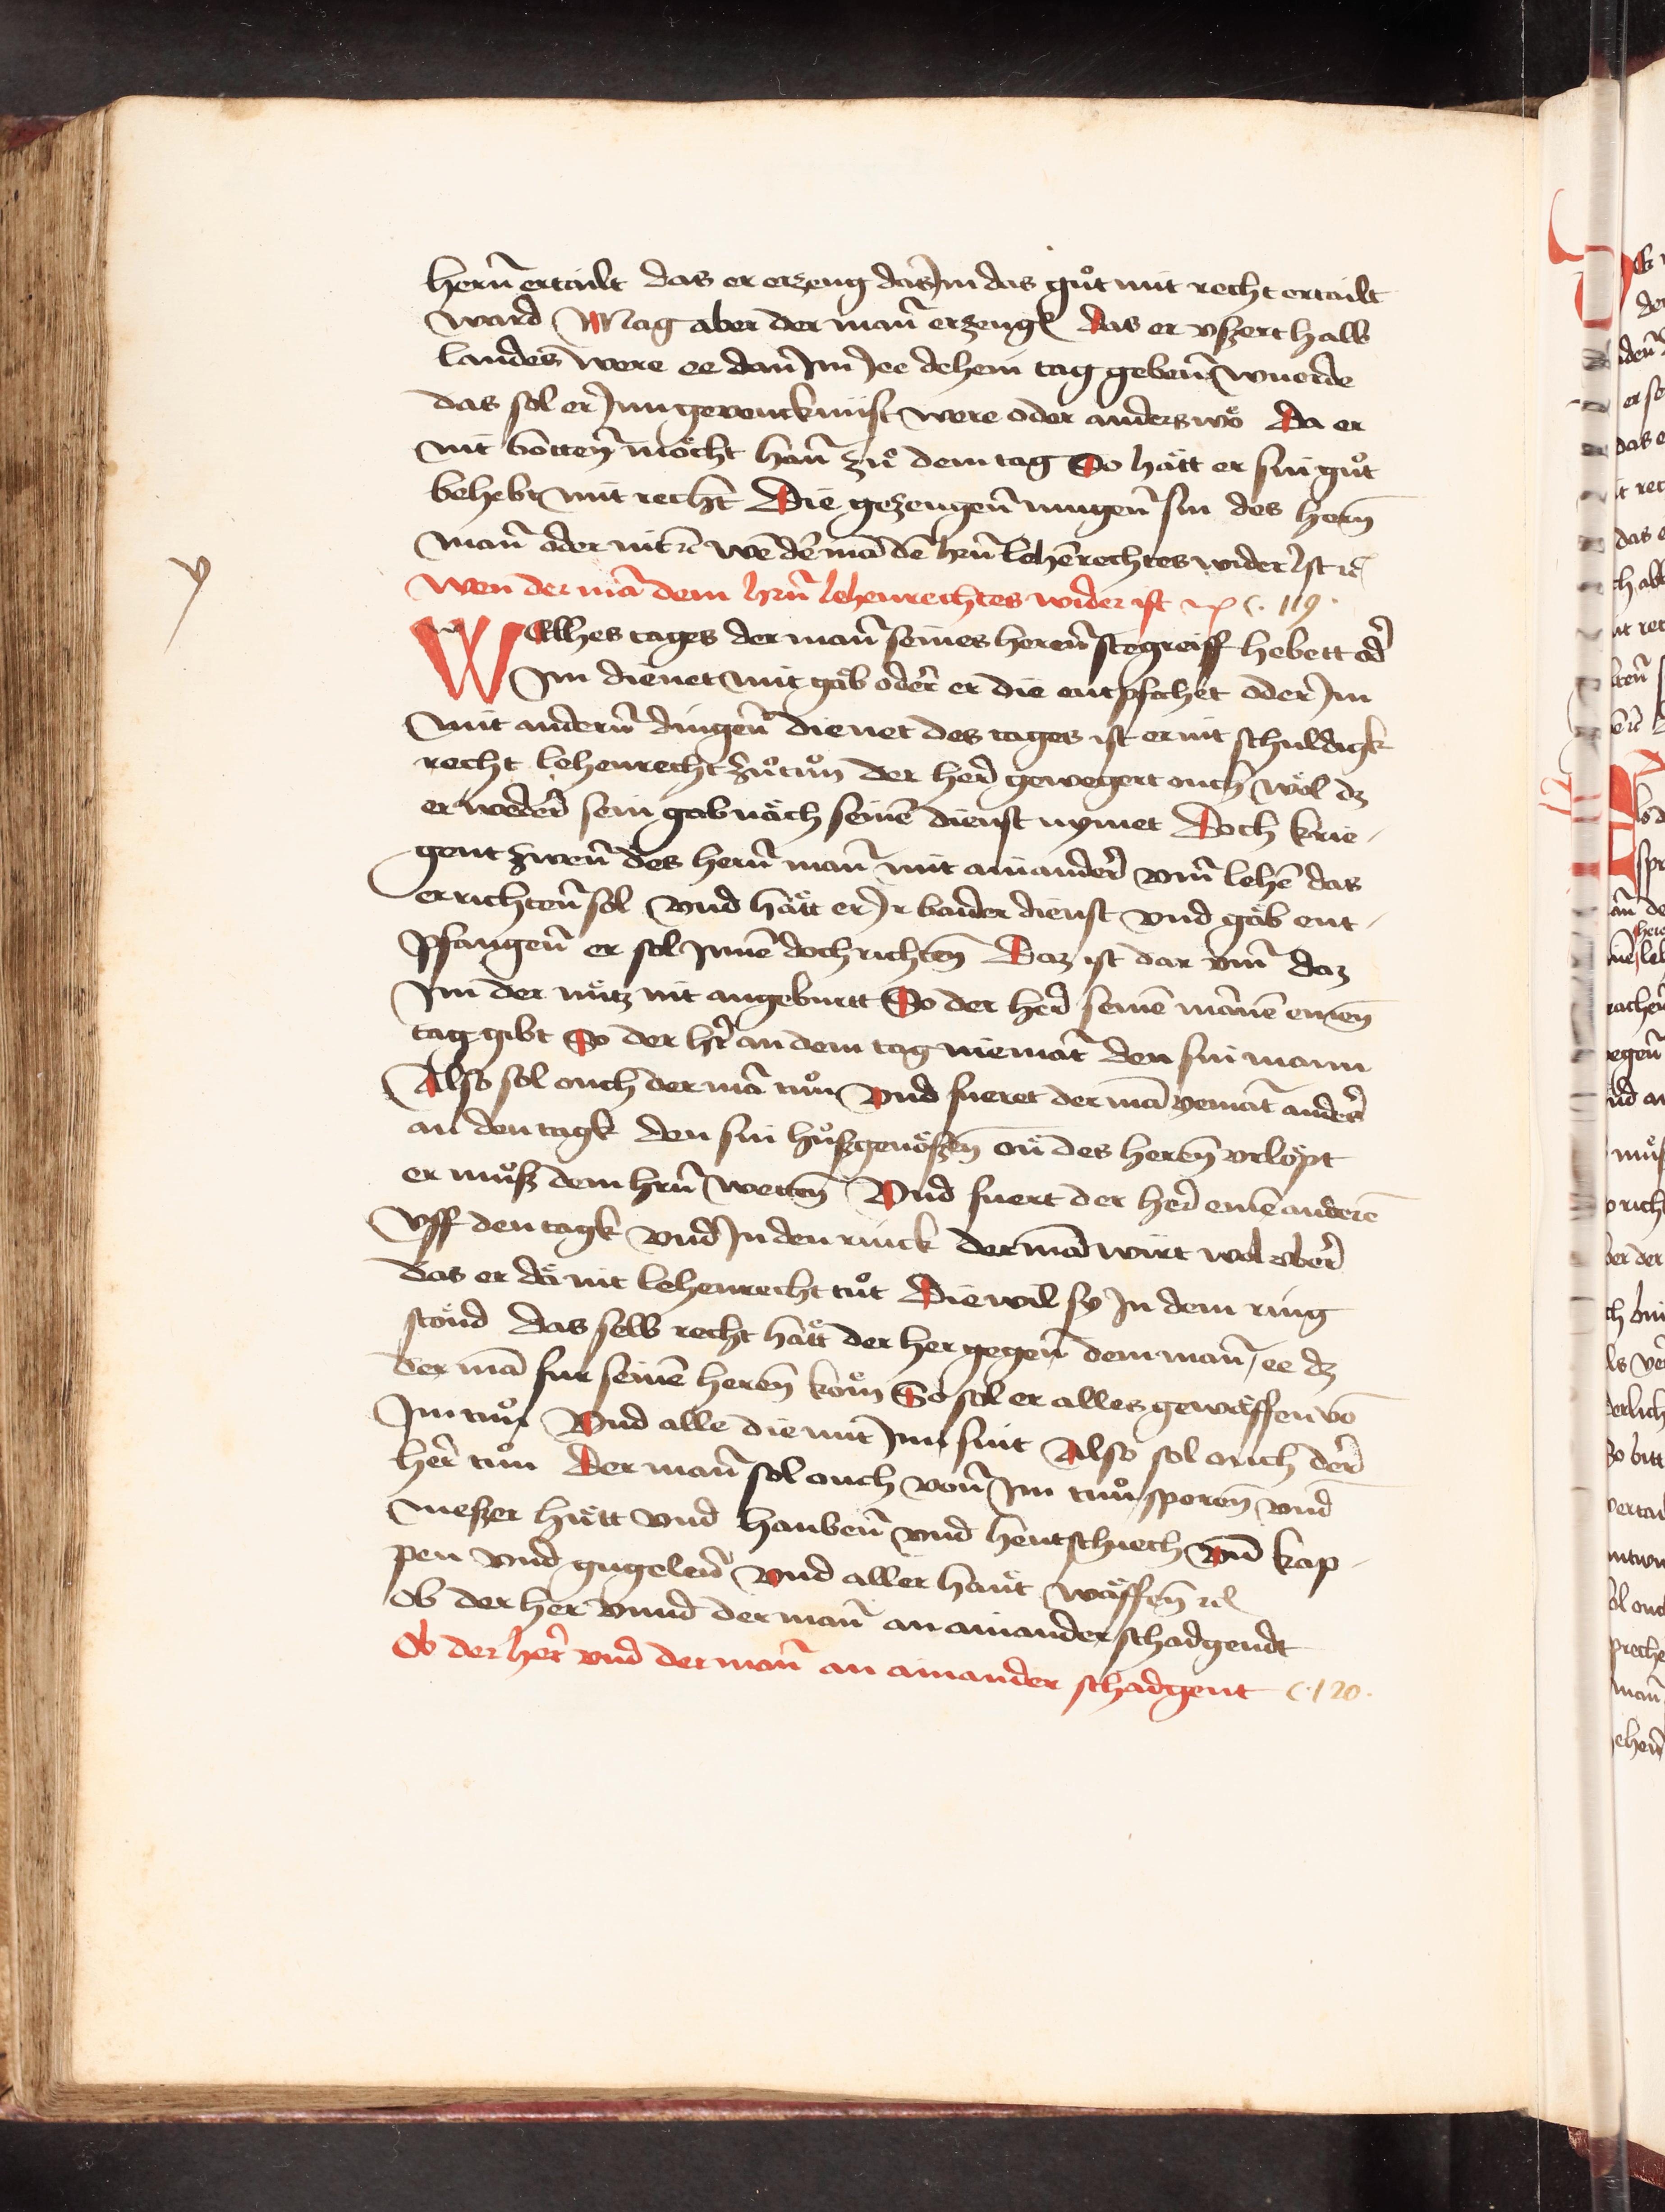 herñ ertailt das er erzeug das Jm das guͦt mit recht ertailt
ward Mag aber der mañ erzeugē das er vßerthalb
landes were ee dañ Jm ee dehein tag gebeñ wuerde
das sol er Jnn gevenncknüst were oder anderswo Da er
nit botteñ moͤcht hañ zuͦ dem tag So haͤtt er sin guͦt
behebt mit recht Die gezeugeñ mugeñ sin des hern̄
mañ oder nit ꝛc wē dē mā dē hrñ lehērechtes wider Jst ꝛc
Wen der mā dem hrñ lehenrechtes wider ist ꝛc c. 119.
WEllhes tages der mañ seines hereñ stegreiff hebett od̄
Im dienet mit gaͤb oder er die entpfachet oder Jm
mit anderñ dingeñ dienet des tages ist er nit schuldigk
recht lehenrecht zuͦ tuͦn der her gewegert ouch woͤl dz
er weder sein gab naͤch seinē dienst nymet Doch krie-
gent zweñ des herñ mañ mit ainander vm̄ lehē das
er richteñ sol vnd haͤtt er Jr baider dienst vnd gaͤb ent-
pfangeñ er sol Jnnē doch richteñ Daz ist dar vm̄ daz
Im der nuͤtz nit angeburtt So der her seinē mānē einen̄
tag gibt So der hr̄ an dem tag niemāt den sin mann
Also sol ouch der mā tuͦn Vnd fueret der mā yemāt anders
an den tagk den sin huͦßgenoͤßen̄ oñ des heren̄ vrloͤpt
er muͦß dem hrñ wetten̄ Vnd fuert der her einē anderē
Vff den tagk vnd Jn den rinck der mā wirt wol vber
das er daͤ nit lehenrecht tuͦt Diewil sy Jn dem ring
stoͤnd das selb recht haͤtt der her gegeñ dem mañ / ee dz
der mā fur seinē heren̄ kom So sol er alles gewaͤffen vō
Jm tuͦn Vnd alle die mit Jm sint Also sol ouch der
her tuͦn Der mañ sol ouch voñ Jm tuͦn sporen̄ vnd
meßer huͤtt vnd haubeñ vnd hentschuech vn̄ kap-
pen vnd gugeleñ vnd aller hañt waͤffen̄ ꝛc
Ob der her vnnd der mañ an ainander schadgendt
Ob der her vnd der mañ an ainander schadgent c. 120.